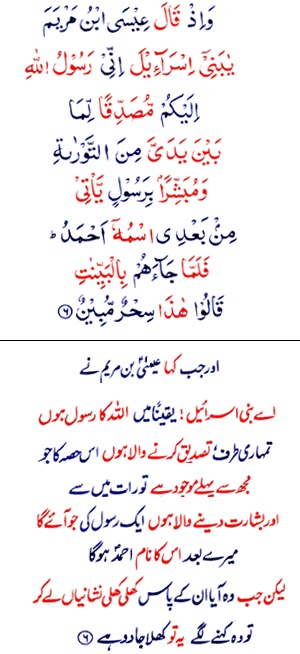 وَاِذْ قَالَ عِيْسَى ابْنُ مَرْيَمَ
يٰبَنِيْۤ اِسْرَآءِيْلَ اِنِّيْ رَسُوْلُ اللّٰهِ
اِلَيْكُمْ مُّصَدِّقًا لِّمَا
بَيْنَ يَدَيَّ مِنَ التَّوْرٰىةِ
وَمُبَشِّرًۢا بِرَسُوْلٍ يَّاْتِيْ
مِنْۢ بَعْدِي اسْمُهٗۤ اَحْمَدُ ؕ
فَلَمَّا جَآءَهُمْ بِالْبَيِّنٰتِ
قَالُوْا هٰذَا سِحْرٌ مُّبِيْنٌ ۶
اور جب کہا عیسیٰؑ بن مریم نے
اے بنی اسرائیل! یقیناً میں اللہ کا رسول ہوں
تمہاری طرف تصدیق کرنے والا ہوں اس حصہ کا جو
مجھ سے پہلے موجود ہے تورات میں سے
اور بشارت دینے والا ہوں ایک رسول کی جو آئے گا
میرے بعد اس کا نام احمدؐ ہوگا
لیکن جب وہ آیا ان کے پاس کھلی کھلی نشانیاں لے کر
تو وہ کہنے لگے یہ تو کھلا جادو ہے ۶